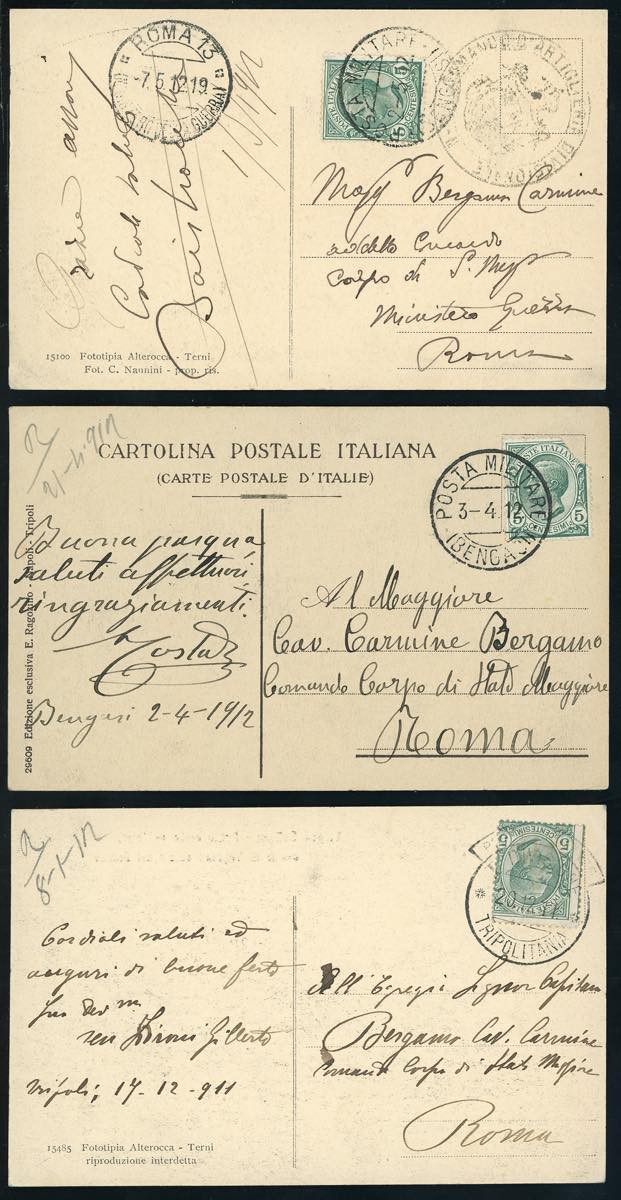 ROMA 13
-7.5.12 19
POSTA MILITARE
COMANDO D'ARTIGLIERIA DIVISIONALE
CENTESIMI
Cordiali saluti
Magg Bergamo Carmine
addetto Comando
Corpo di S. Magg
Ministero Guerra
Roma
15100 Fototipia Alterocca - Terni
Fot. C. Naunini - prop. ris.
R/ 12-4-912
CARTOLINA POSTALE ITALIANA
(CARTE POSTALE D'ITALIE)
POSTE ITALIANE
5 CENTESIMI 5
POSTA MILITARE
3-4.12
(BENGASI)
Buona pasqua
saluti affettuosi,
ringraziamenti.
Costa
Bengasi 2-4-1912
Al Maggiore
Cav. Carmine Bergamo
Comando Corpo di Stato Maggiore
Roma
29609 Edizione esclusiva E. Ragozino - Napoli - Tripoli
R/ 8-1-912
5 CENTESIMI 5
POSTE ITALIANE
TRIPOLITANIA
Cordiali saluti ed
auguri di buone feste
Suo Dev mo
Gilberto
Tripoli, 17-12-911
All'Egregio Signor Capitano
Bergamo Cav. Carmine
Comando Corpo di Stato Maggiore
Roma
15485 Fototipia Alterocca - Terni
riproduzione interdetta